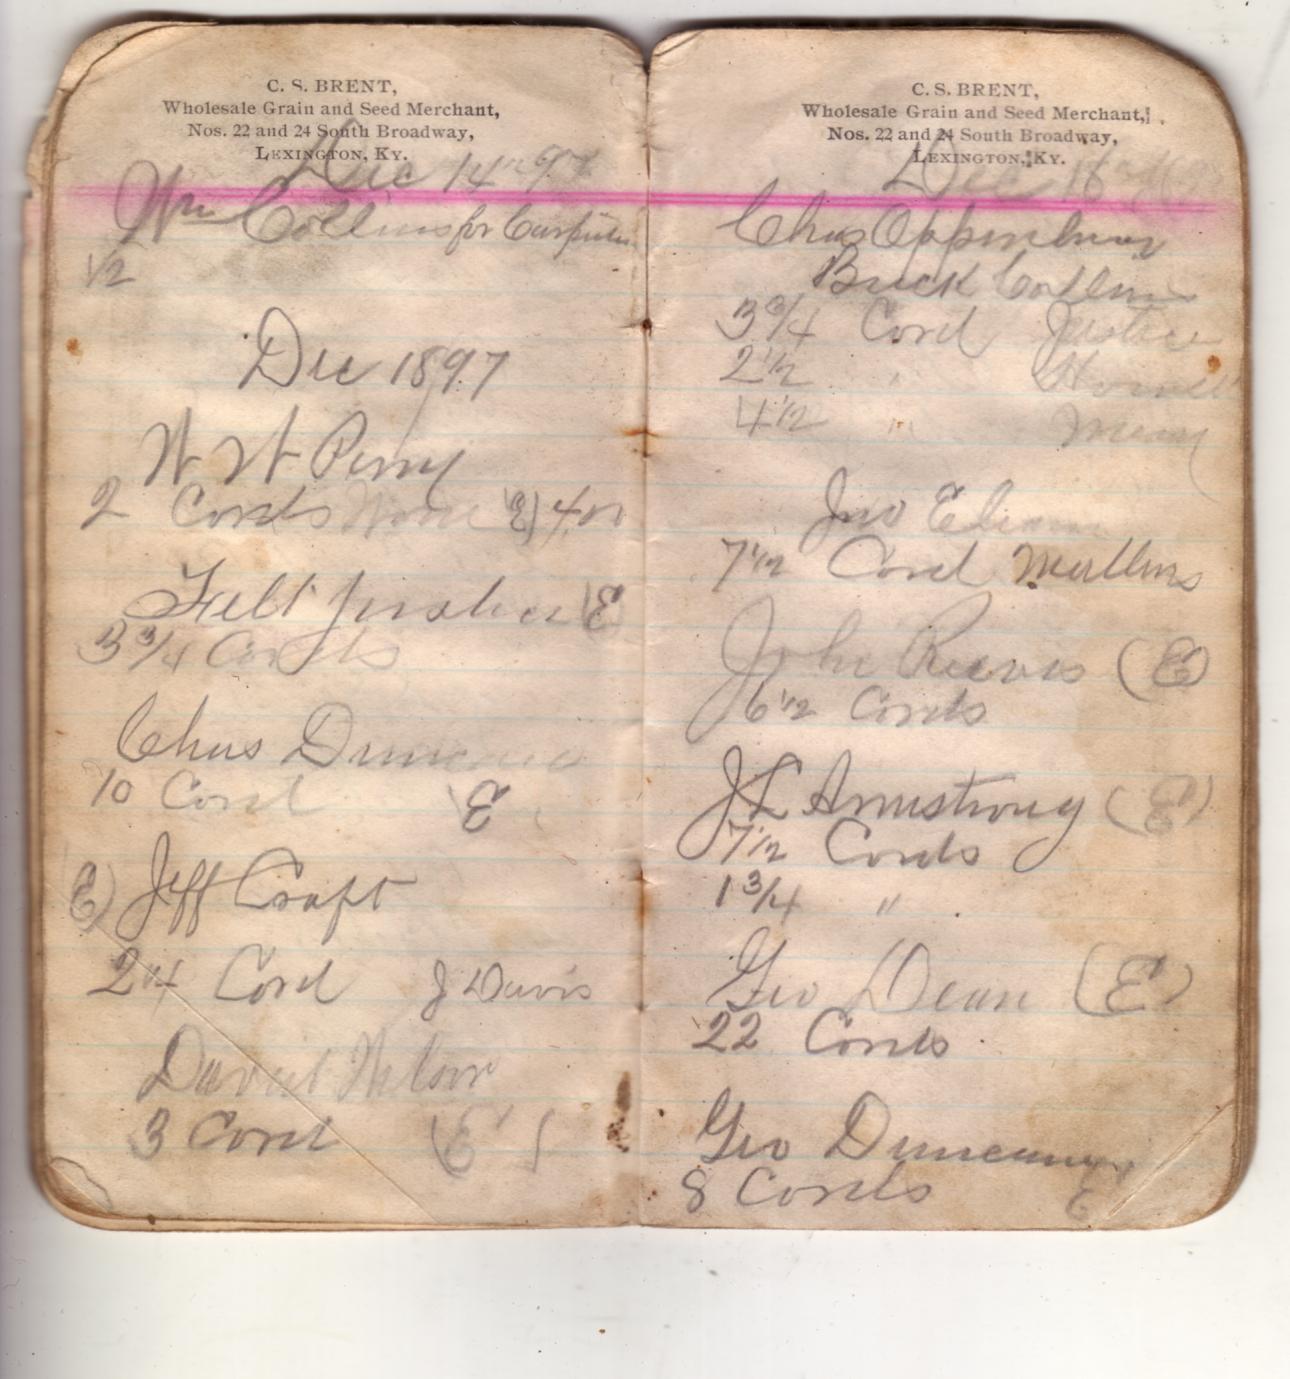 C. S. BRENT,
Wholesale Grain and Seed Merchant,
Nos. 22 and 24 South Broadway,
LEXINGTON, KY.
Dec 14th 97
Wm Collins for
1/2
Dec 1897
W W Perry
2 Cords E) 4
Felt Justice (E
3 3/4 Cords
Chas Duncan
10 Cord (E
E) Jeff Craft
24 Cord J Davis
David
3 Cord (E
C. S. BRENT,
Wholesale Grain and Seed Merchant,
Nos. 22 and 24 South Broadway,
LEXINGTON, KY.
Dec 16
Chas
Buck Collins
3 3/4 Cord Justice
2 1/2 "
4 1/2 "
Jno
7 1/2 Cord Mullins
John Reeves (E)
6 1/2 Cords
J L Armstrong (E)
7 1/2 Cords
1 3/4 "
Geo Dean (E)
22 Cords
Geo Duncan
8 Cords E